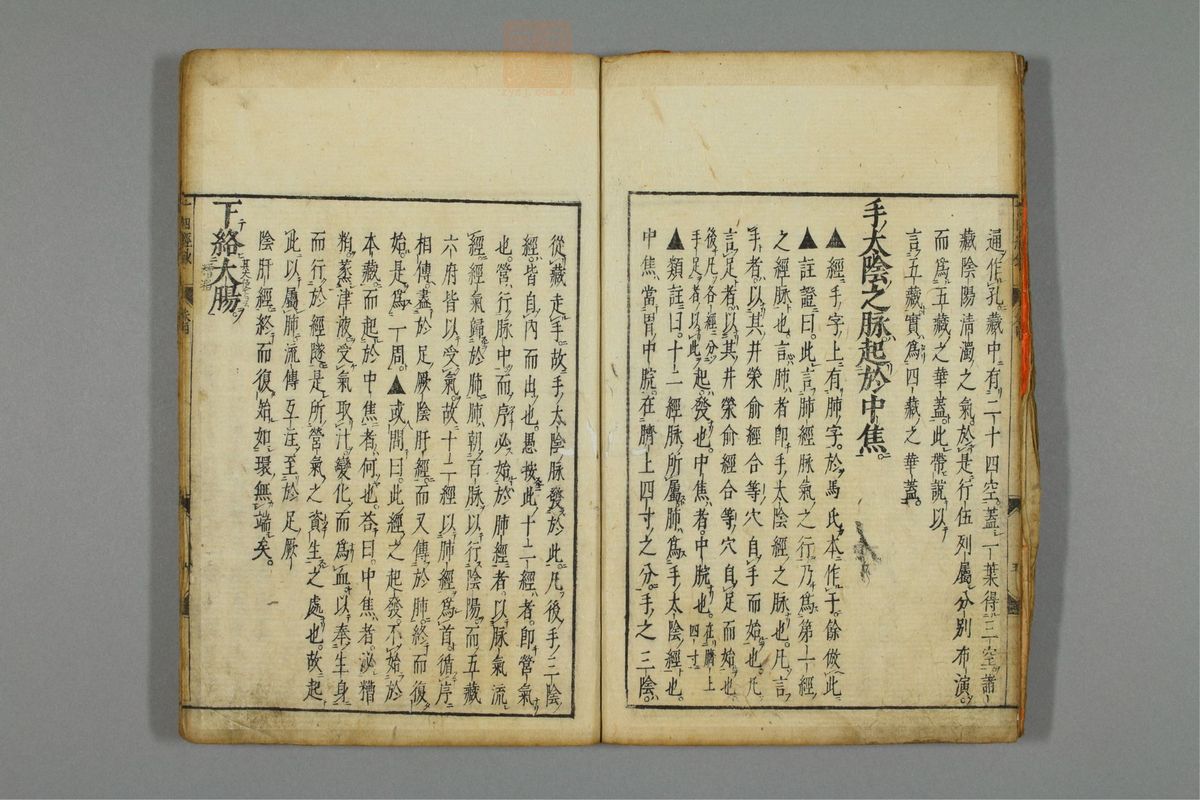 通作孔藏中有二十四空蓋一葉得三空諸
藏陰陽清濁之氣於是行伍列屬分別布演。
而爲五藏之華蓋。此帶說以
言五藏實爲四藏之華蓋。
手太陰之脉起於中焦。
▲經手字上有肺字。於馬氏本作于。餘倣此
▲註證曰。此言肺經脉氣之行乃爲第一經
之經脉也。言肺者即手太陰經之脉也。凡言
手者。以其井榮俞經合等穴自手而始也。凡
言足者。以其井榮俞經合等穴自足而始也
後凡各經分手足者以此起。發也。中焦者。中脘也。在臍上四寸
▲類註曰。十二經脉所屬肺爲手太陰經也。
中焦當胃中脘在臍上四寸之分。手之三陰。
從藏走手故手太陰脉發於此。凡後手三陰
經。皆自內而出也。愚按此十二經者。即營氣
也。營行脉中而序必始於肺經者。以脉氣流
經經氣歸於肺肺朝百脉以行陰陽。而五藏
六府皆以受氣。故十二經以肺經爲首。循序
相傳。盡於足厥陰肝經而又傳於肺。終而復
始。是爲一周。▲或問曰。此經之起發不始於
本藏而起於中焦者何也。荅曰。中焦者。泌糟
粕蒸津液受氣取汁變化而爲血以奉生身
而行於經隧。是所營氣之資生之處也。故起
此以屬肺流傳互注至於足厥
陰肝經終而復始如環無端矣。
下絡大腸